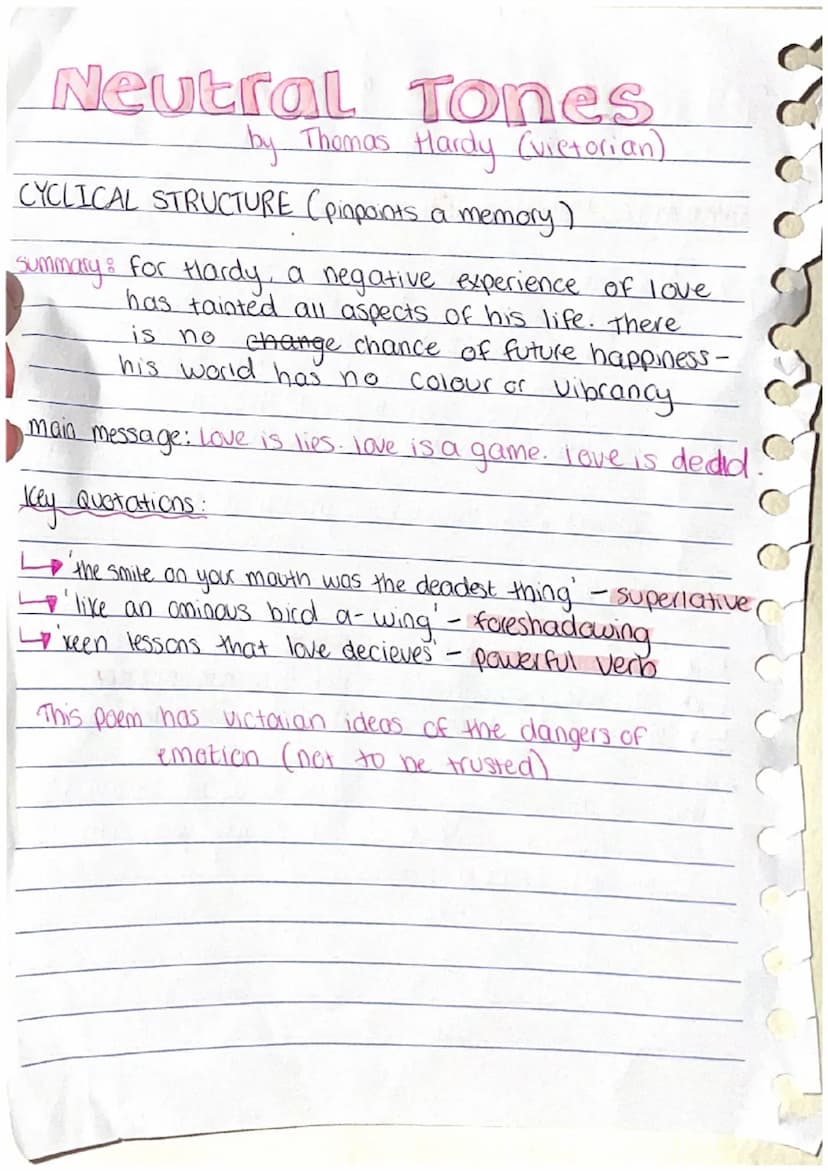 Neutral Tones
by Thomas Hardy (victorian)
CYCLICAL STRUCTURE (pinpoints a memory)
summary: for Hardy, a negative experience of love
has tainted all aspects of his life. There
is no change chance of future happiness-
his world has no colour or vibrancy
main message: Love is lies. love is a game. love is dead.
Key Quotations:
'the smile on your mouth was the deadest thing' - superlative
'like an ominous bird a-wing' - foreshadowing
'keen lessons that love decieves' - powerful verb
This poem has victorian ideas of the dangers of
emotion (not to be trusted)